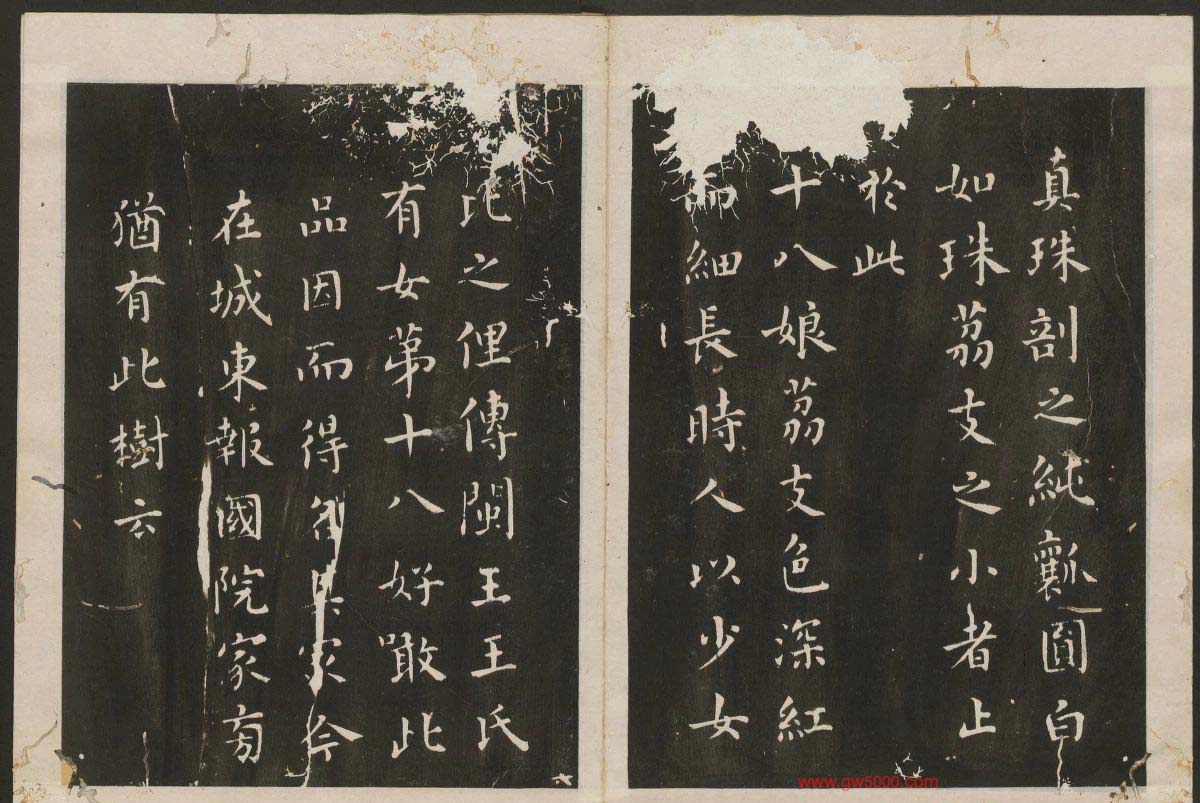 真珠剖之純瓤圓白
如珠荔支之小者止
於此
十八娘荔支色深紅
而細長時人以少女
比之俚傳閩王王氏
有女苐十八好噉此
品因而得名其冢今
在城東報國院冢旁
猶有此樹云
www.gw5000.com